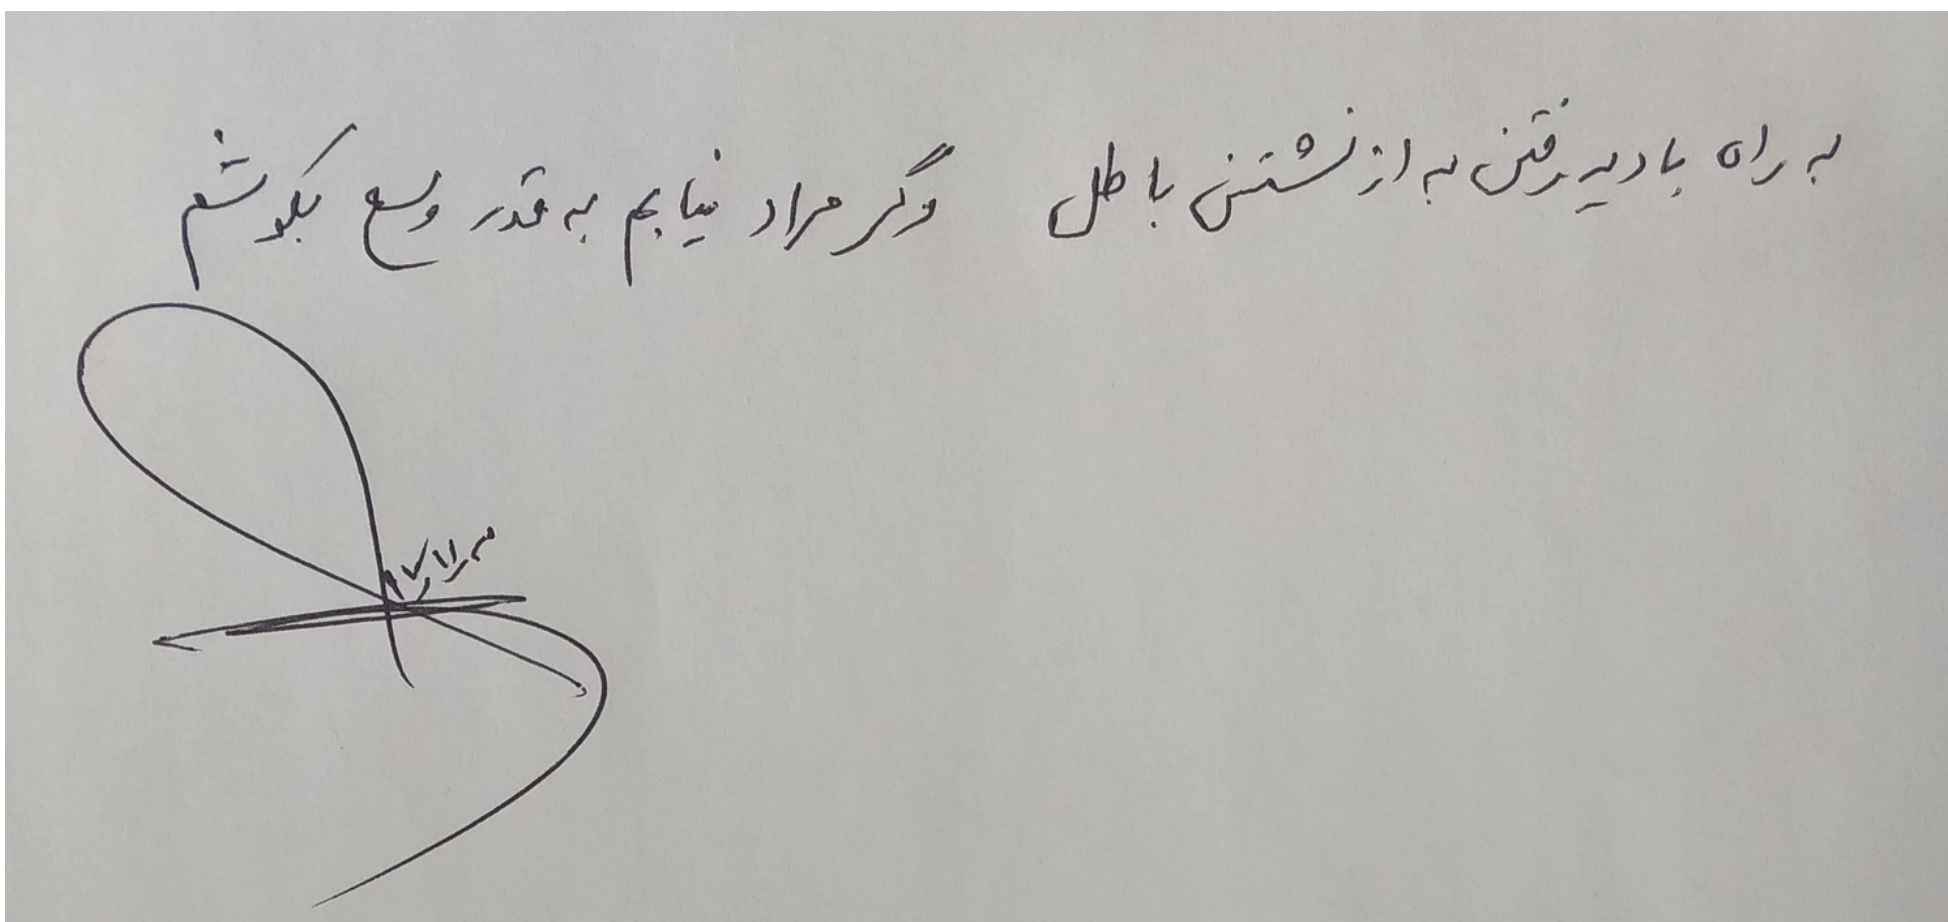 به راه بادیه رفتن به از نشستن باطل وگر مراد نیابم به قدر وسع بکوشم